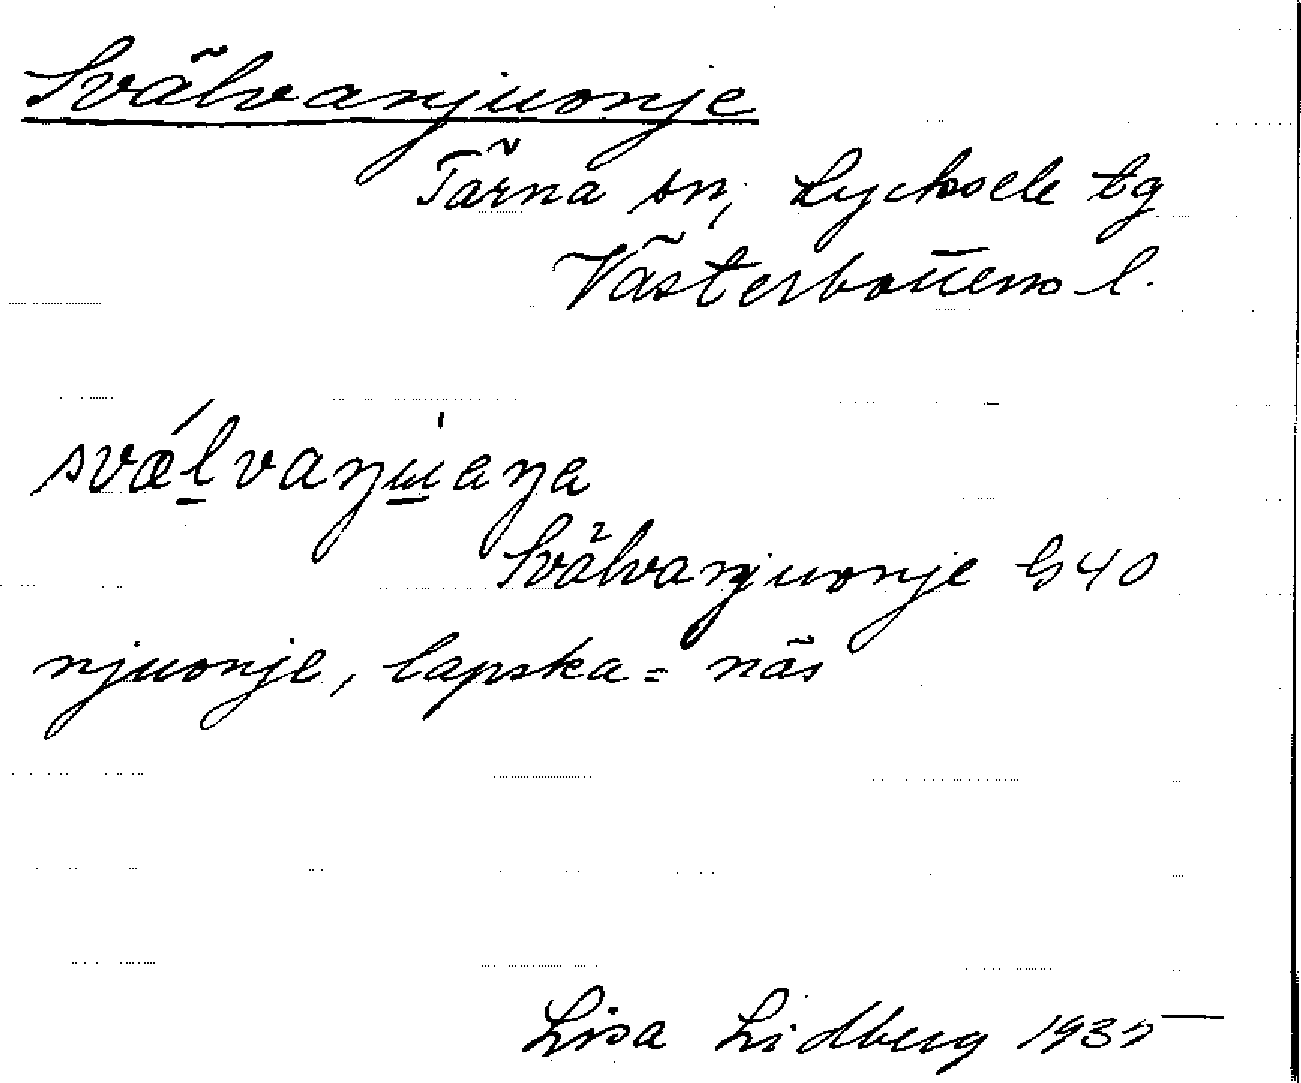 Svälvanjuonje
Tärna sn, Lycksele tg
Västerbottens l.
svǽl̲vaŋu̲aŋa
Svälvanjuonje G40
njuonje, lapska = näs
Lisa Lidberg 1935